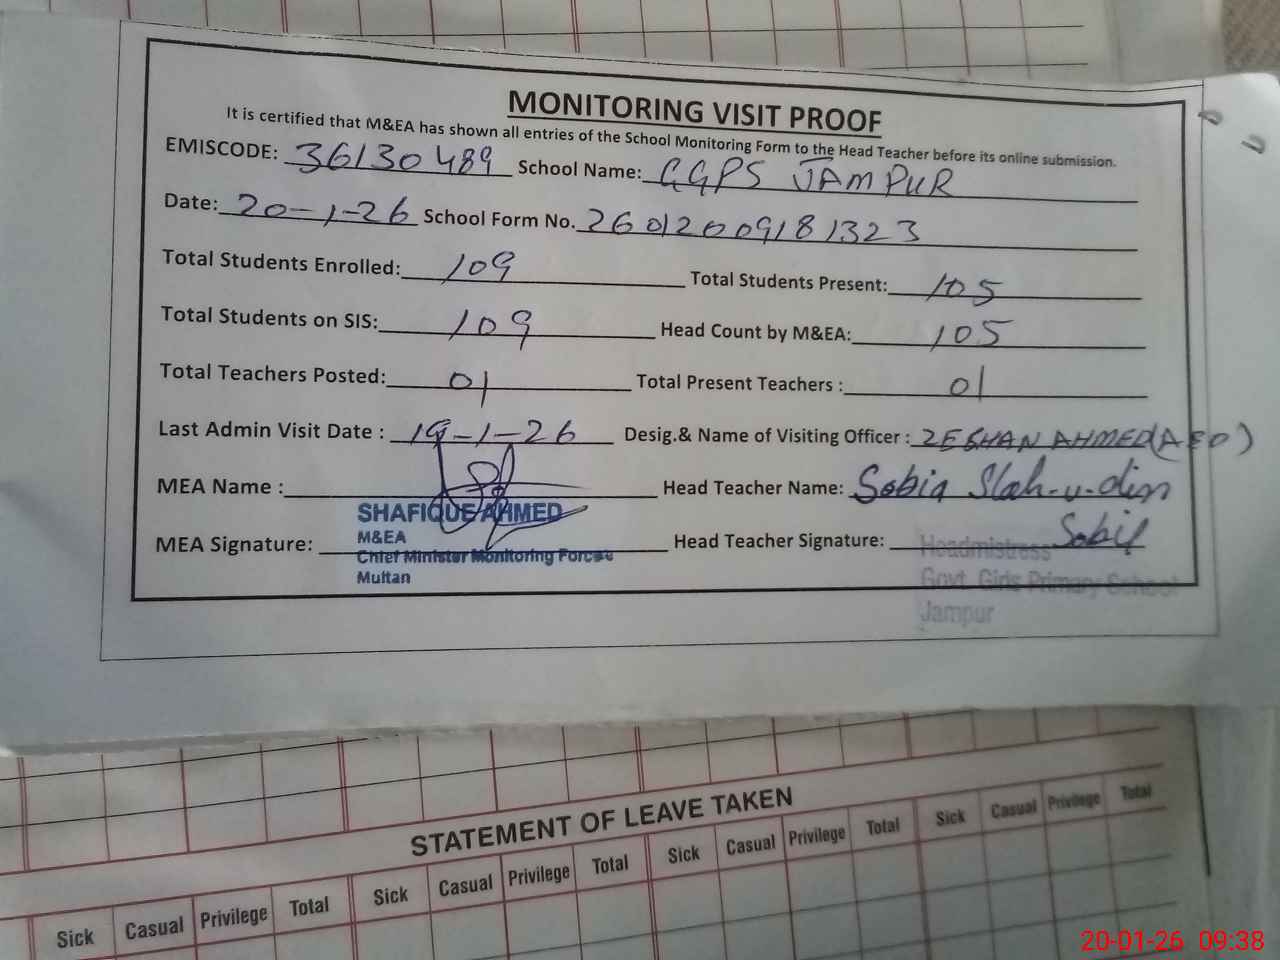 MONITORING VISIT PROOF
It is certified that M&EA has shown all entries of the School Monitoring Form to the Head Teacher before its online submission.
EMISCODE: 36130489 School Name: GGPS JAMPUR
Date: 20-1-26 School Form No. 26012009181323
Total Students Enrolled: 109 Total Students Present: 105
Total Students on SIS: 109 Head Count by M&EA: 105
Total Teachers Posted: 01 Total Present Teachers : 01
Last Admin Visit Date : 19-1-26 Desig.& Name of Visiting Officer : ZESHAN AHMED(AEO)
MEA Name : Head Teacher Name: Sobia Slah-u-din
SHAFIQUE AHMED
M&EA
MEA Signature: Head Teacher Signature: Sobia
Chief Minister Monitoring Forces
Multan
Headmistress
Govt. Girls Primary School
Jampur
STATEMENT OF LEAVE TAKEN
Sick Casual Privilege Total Sick Casual Privilege Total Sick Casual Privilege Total Sick Casual Privilege Total
20-01-26 09:38